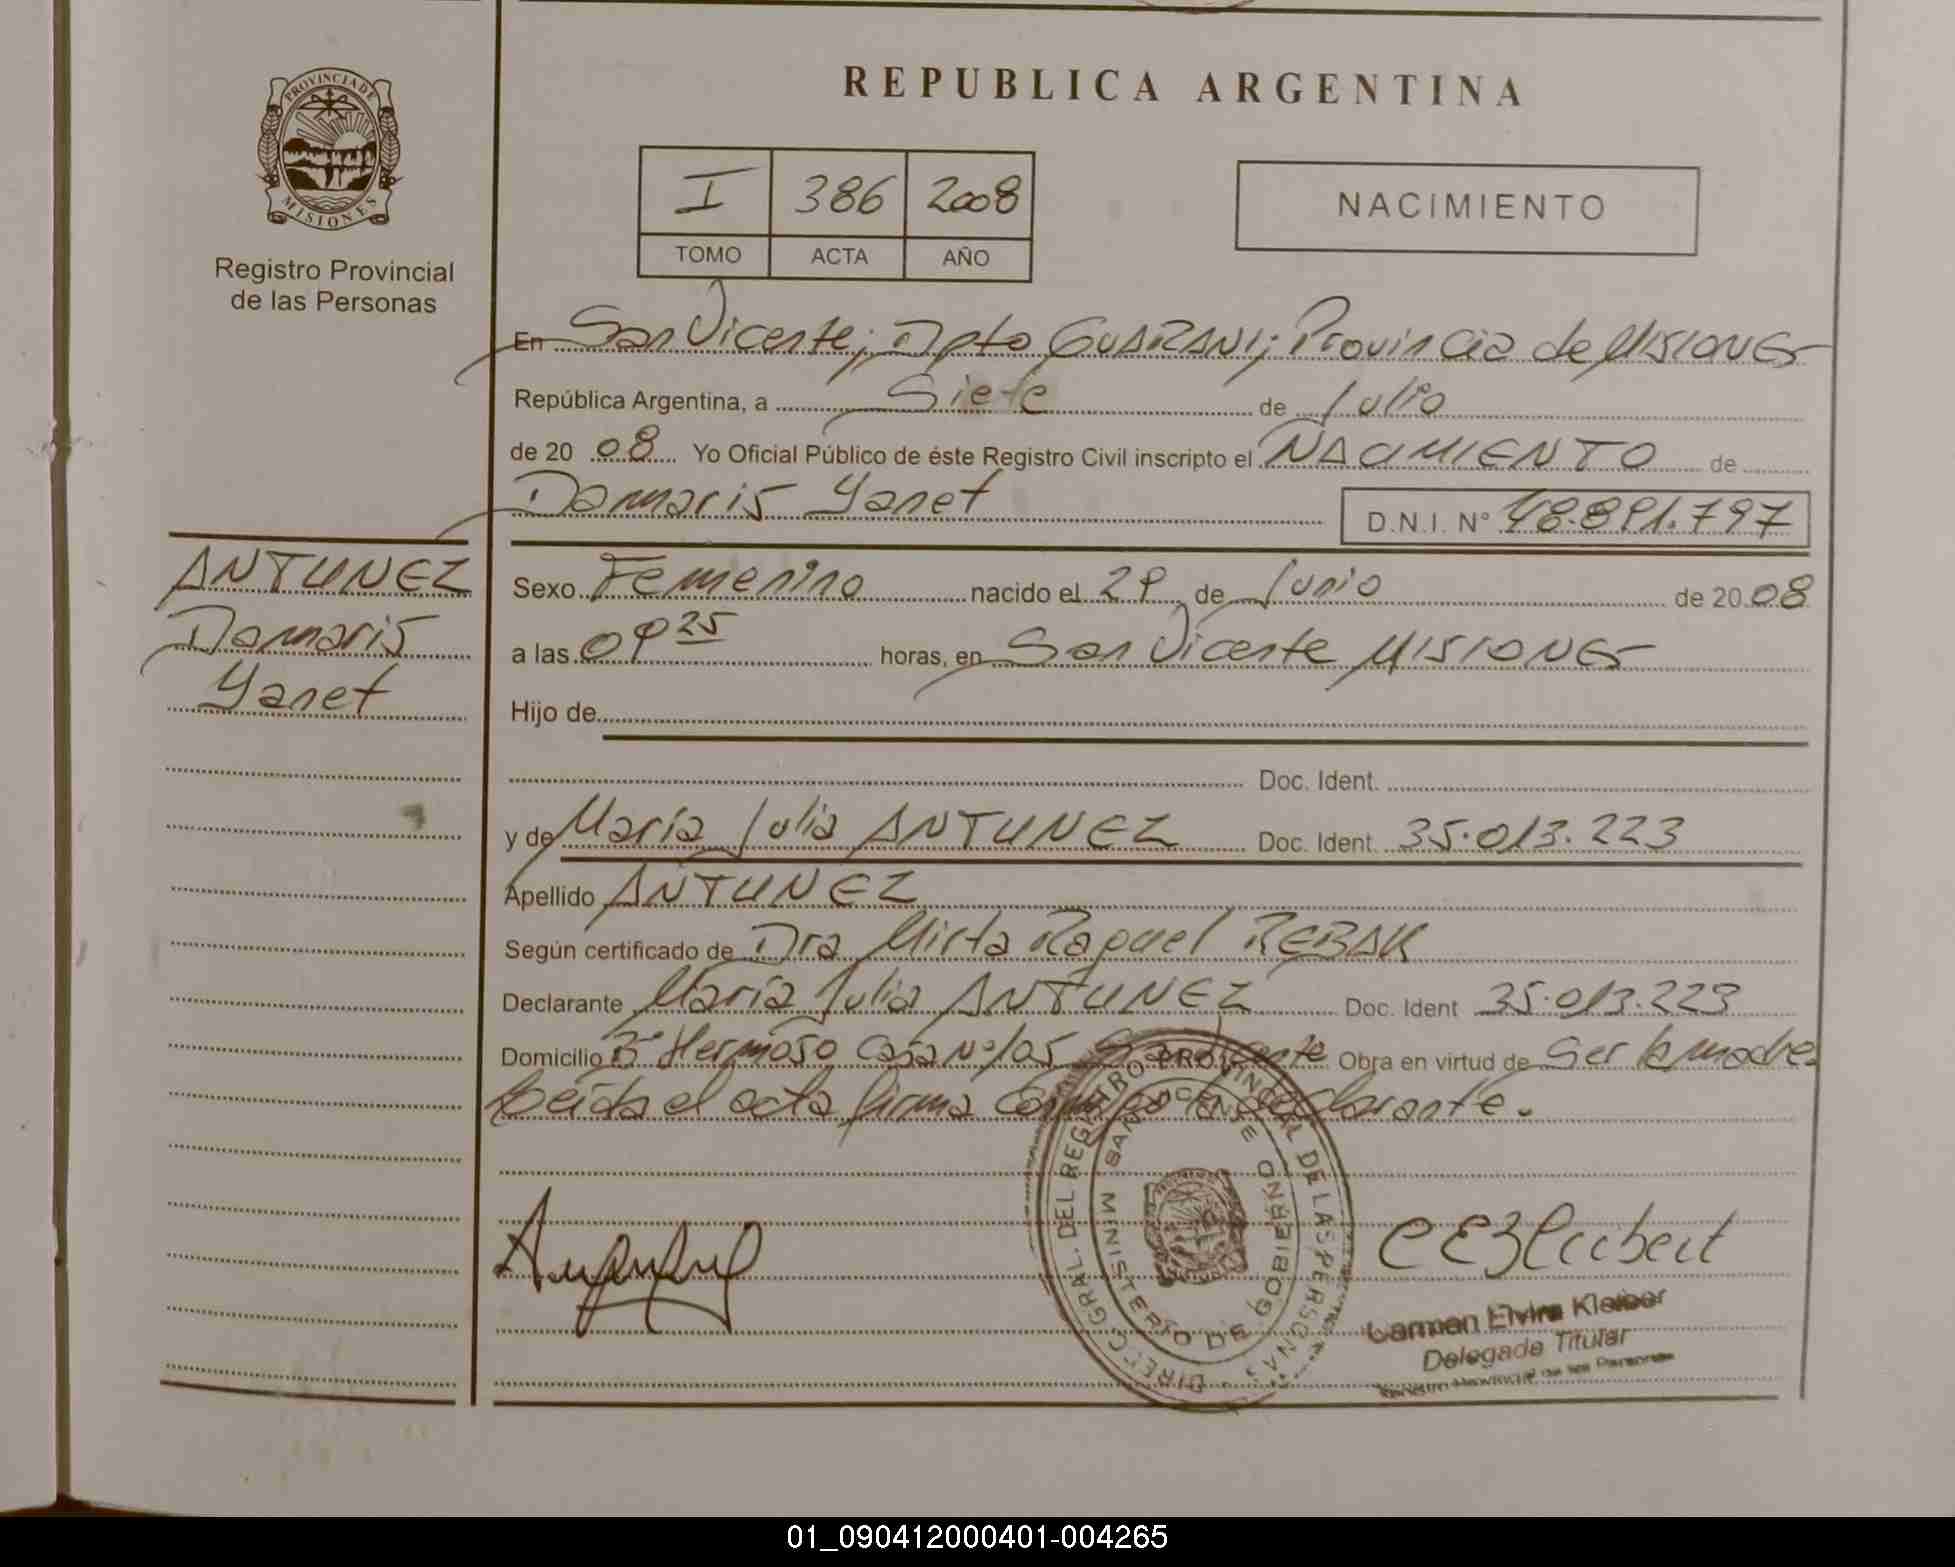 PROVINCIA DE
MISIONES
Registro Provincial
de las Personas
REPUBLICA ARGENTINA
I 386 2008
TOMO ACTA AÑO
NACIMIENTO
En San Vicente; Dpto GUARANI; Provincia de MISIONES
República Argentina, a Siete de Julio
de 20 08 Yo Oficial Público de éste Registro Civil inscripto el NACIMIENTO de
Damaris Yanet D.N.I. N° 48.891.797
ANTUNEZ
Damaris
Yanet
Sexo Femenino nacido el 29 de Junio de 20 08
a las 09 25 horas, en San Vicente MISIONES
Hijo de
Doc. Ident.
y de María Julia ANTUNEZ Doc. Ident. 35.013.223
Apellido ANTUNEZ
Según certificado de Dra Mirta Raquel REBAK
Declarante María Julia ANTUNEZ Doc. Ident 35.013.223
Domicilio B° Hermoso Casa N° 105 San Vicente Obra en virtud de Ser la madre
Leída el acta firma Conmigo la declarante.
DIREC. GRAL. DEL REGISTRO PROVINCIAL DE LAS PERSONAS
MINISTERIO DE GOBIERNO
SAN VICENTE
Carmen Elvira Kleiber
Delegade Titular
Registro Provincial de las Personas
01_090412000401-004265